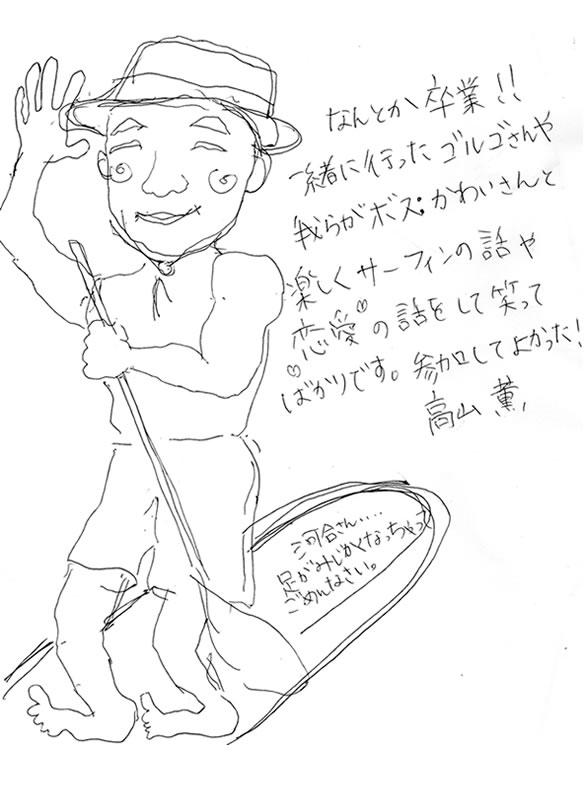 なんとか卒業!!
一緒に行ったゴルゴさんや
我らがボス・かわいさんと
楽しくサーフィンの話や
恋愛の話をして笑って
ばかりです。参加してよかった!
高山 薫
河合さん....
足がみじかくなっちゃって
ごめんなさい。